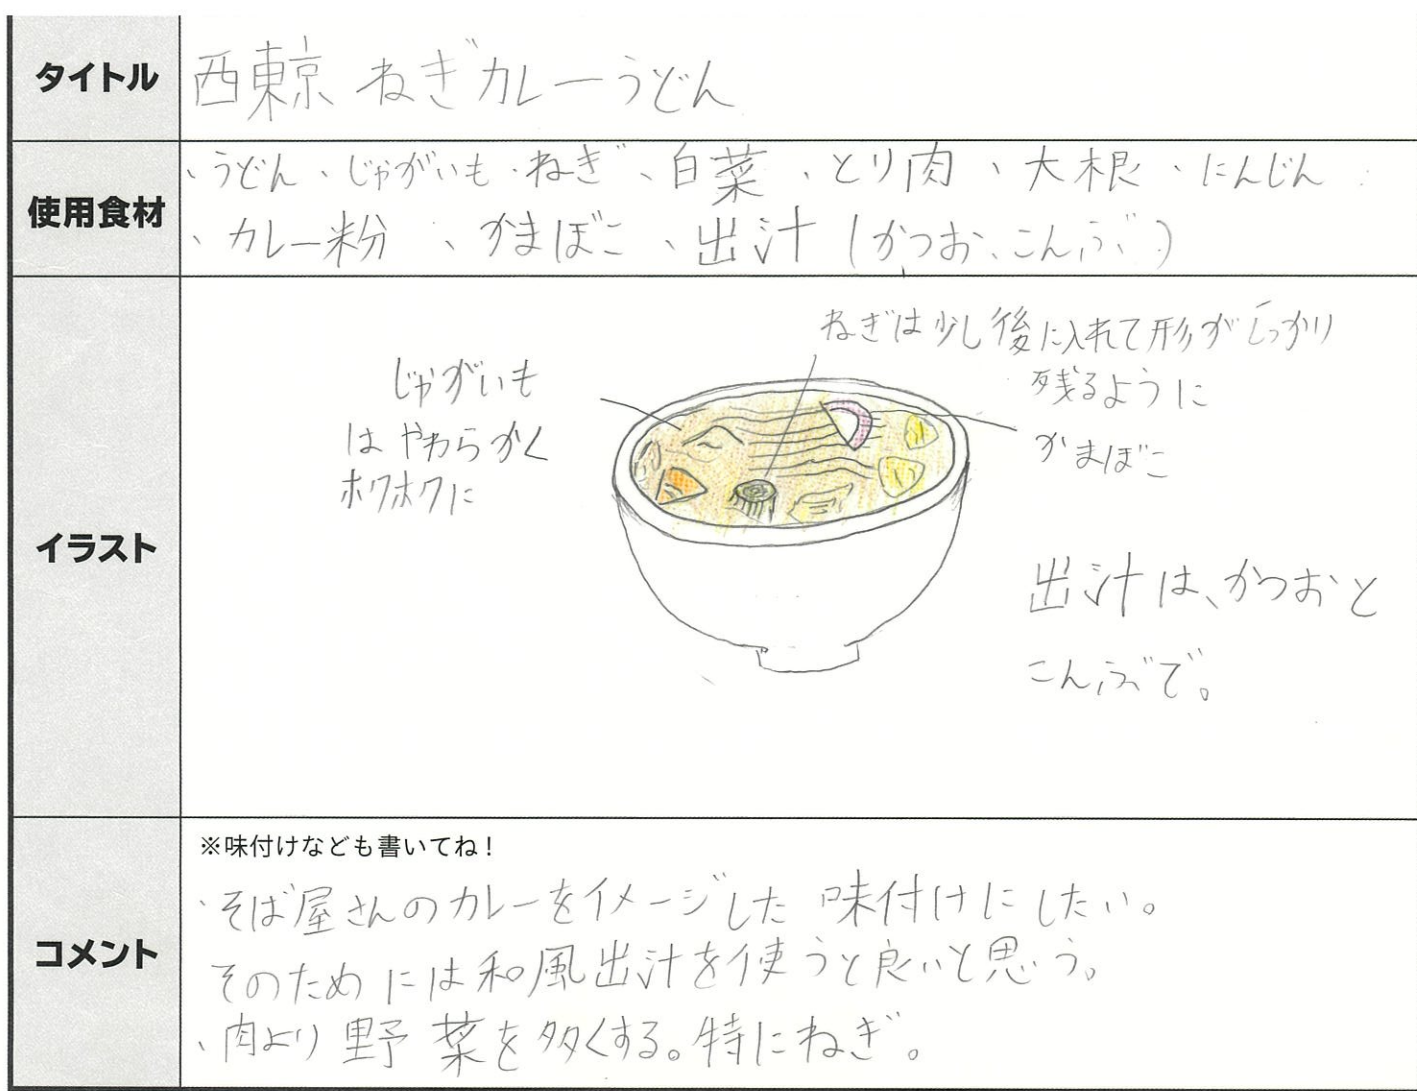 タイトル
西東京 ねぎカレーうどん
使用食材
・うどん・じゃがいも・ねぎ、白菜、とり肉、大根、にんじん
、カレー粉、かまぼこ、出汁(かつお、こんぶ)
イラスト
ねぎは少し後に入れて形がしっかり
残るように
じゃがいも
はやわらかく
ホクホクに
かまぼこ
出汁は、かつおと
こんぶで。
コメント
※味付けなども書いてね!
・そば屋さんのカレーをイメージした味付けにしたい。
そのためには和風出汁を使うと良いと思う。
、肉より野菜を多くする。特にねぎ。